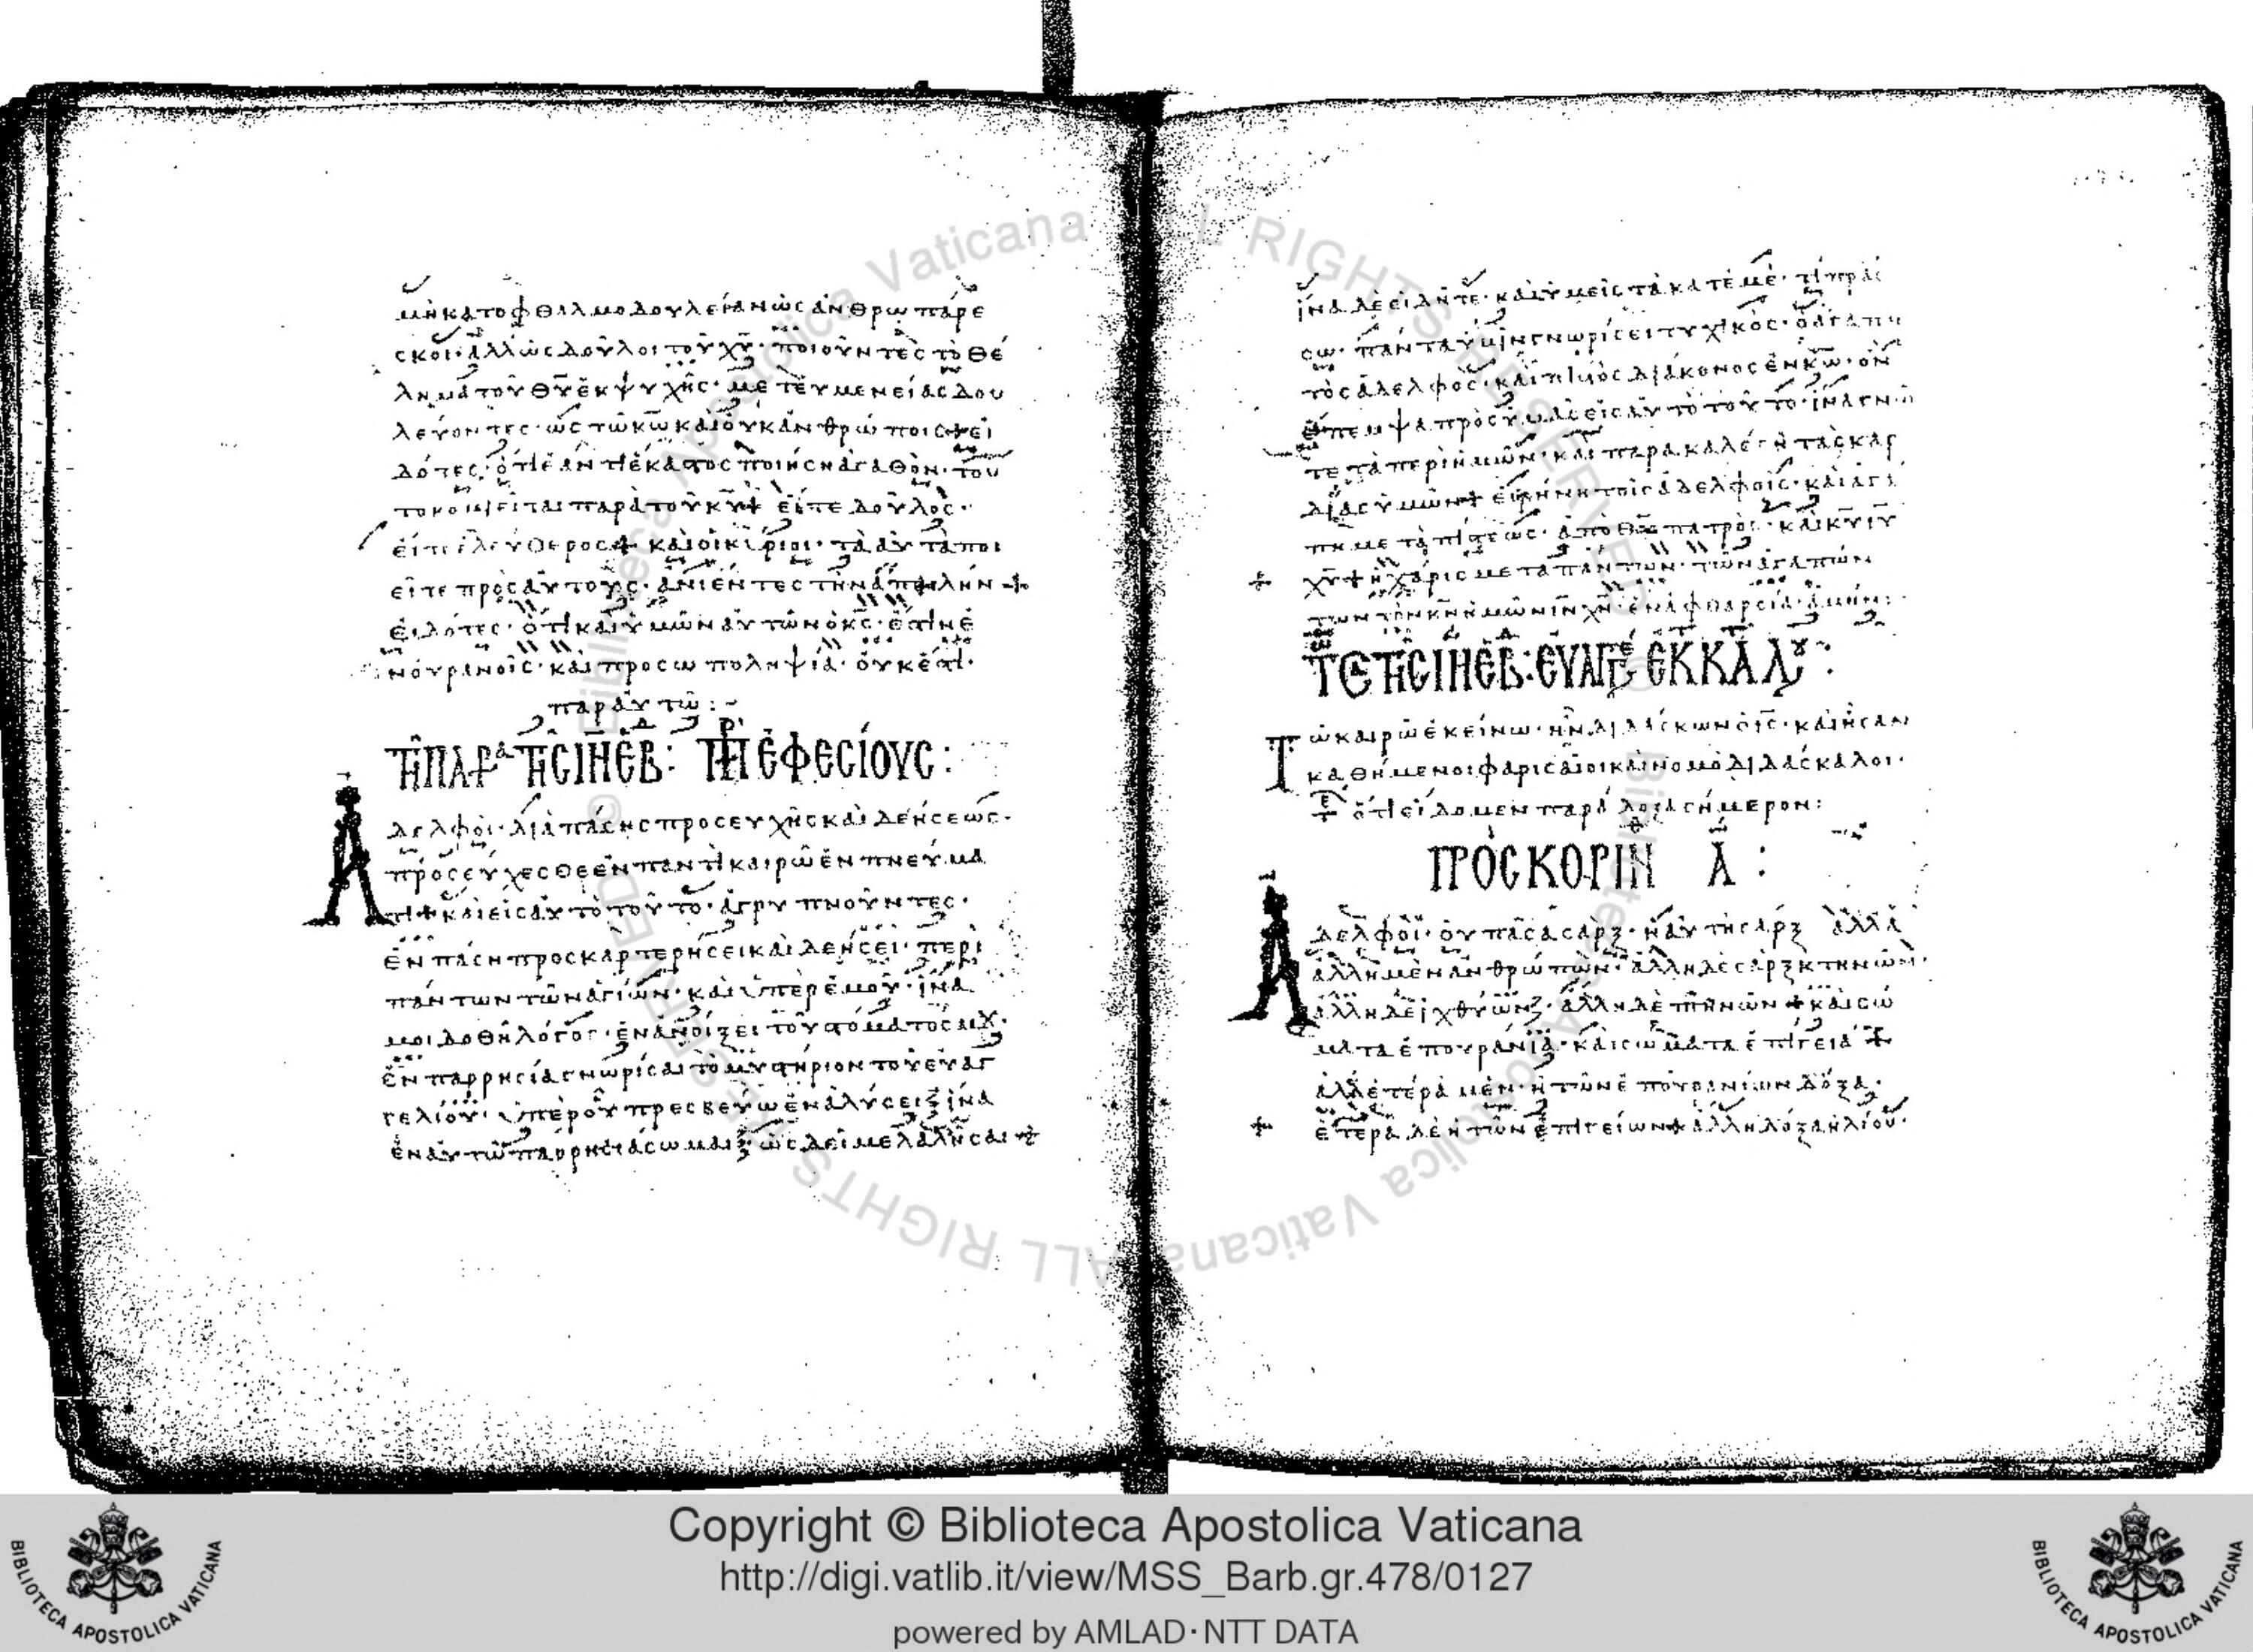 μὴ κατ ὀφθαλμοδουλείαν ὡς ἀνθρωπάρε
σκοι· ἀλλ ὡς δοῦλοι τοῦ χυ· ποιοῦντες τὸ θέ
λημα τοῦ θυ ἐκ ψυχῆς· μετ εὐμενείας δου
λεύοντες· ὡς τῶ κω καὶ οὐκ ἀνθρώποις· εἰ
δότες· ὅτι ἐάν τι ἕκαστος ποιήση ἀγαθὸν· του
το κομιεῖται παρὰ τοῦ κυ + εἴτε δοῦλος·
εἴτε ἐλεύθερος + καὶ οἱ κύριοι· τὰ αὐτὰ ποι
εῖτε πρὸς αὐτοὺς· ἀνιέντες τὴν ἀπειλὴν +
εἰδότες· ὅτι καὶ ὑμῶν αὐτῶν ὁ κς· ἐστὶν ἐ
ν οὐρανοῖς· καὶ προσωποληψία· οὐκ ἔστι·
παρ αὐτῶ :~
ΤΗ ΠΑΡΑ ΤΗΣ ΙΗ ΕΒΔ : ΠΡ ΕΦΕΣΙΟΥΣ :
Αδελφοὶ· διὰ πάσης προσευχῆς καὶ δεήσεως·
προσεύχεσθε ἐν παντὶ καιρῶ ἐν πνεύμα
τι + καὶ εἰς αὐτὸ τοῦτο· ἀγρυπνοῦντες·
ἐν πάση προσκαρτερήσει καὶ δεήσει· περὶ
πάντων τῶν ἁγίων· καὶ ὑπὲρ ἐμοῦ· ἵνα
μοι δοθῆ λόγος· ἐν ἀνοίξει τοῦ στόματός μου·
ἐν παρρησία γνωρίσαι τὸ μυστήριον τοῦ εὐαγ
γελίου· ὑπὲρ οὗ πρεσβεύω ἐν ἁλύσει· ἵνα
ἐν αὐτῶ παρρησιάσωμαι· ὡς δεῖ με λαλῆσαι +
ἵνα δὲ εἰδῆτε· καὶ ὑμεῖς τὰ κατ ἐμὲ· τί πράς
σω· πάντα ὑμῖν γνωρίσει τυχικὸς· ὁ ἀγαπη
τὸς ἀδελφὸς· καὶ πιστὸς διάκονος ἐν κω· ὃν
ἔπεμψα πρὸς ὑμᾶς εἰς αὐτὸ τοῦτο· ἵνα γνῶ
τε τὰ περὶ ἡμῶν· καὶ παρακαλέση τὰς καρ
δίας ὑμῶν + εἰρήνη τοῖς ἀδελφοῖς· καὶ ἀγά
πη μετὰ πίστεως· ἀπὸ θυ πατρὸς· καὶ κυ ιυ
χυ + ἡ χάρις μετὰ πάντων· τῶν ἀγαπών
των τὸν κν ἡμῶν ιν χν· ἐν ἀφθαρσία· ἀμήν:
ΤΗΣ ΙΗ ΕΒΔ: ΕΥΑΓΓΕ ΕΚ ΚΑ Λου :
Τῶ καιρῶ ἐκείνω· ἦν διδάσκων ὁ ις· καὶ ἦσαν
καθήμενοι φαρισαῖοι καὶ νομοδιδάσκαλοι·
ὅτι εἴδομεν παράδοξα σήμερον:
ΠΡΟΣ ΚΟΡΙΝ Α :
Αδελφοὶ· οὐ πᾶσα σὰρξ· ἡ αὐτὴ σάρξ ἀλλὰ
ἄλλη μὲν ἀνθρώπων· ἄλλη δὲ σὰρξ κτηνῶν·
ἄλλη δὲ ἰχθύων· ἄλλη δὲ πτηνῶν + καὶ σώ
ματα ἐπουράνια· καὶ σώματα ἐπίγεια +
ἀλλ ἑτέρα μὲν· ἡ τῶν ἐπουρανίων δόξα·
ἑτέρα δὲ ἡ τῶν ἐπιγείων + ἄλλη δόξα ἡλίου·
Copyright © Biblioteca Apostolica Vaticana
http://digi.vatlib.it/view/MSS_Barb.gr.478/0127
powered by AMLAD·NTT DATA
BIBLIOTECA APOSTOLICA VATICANA
BIBLIOTECA APOSTOLICA VATICANA